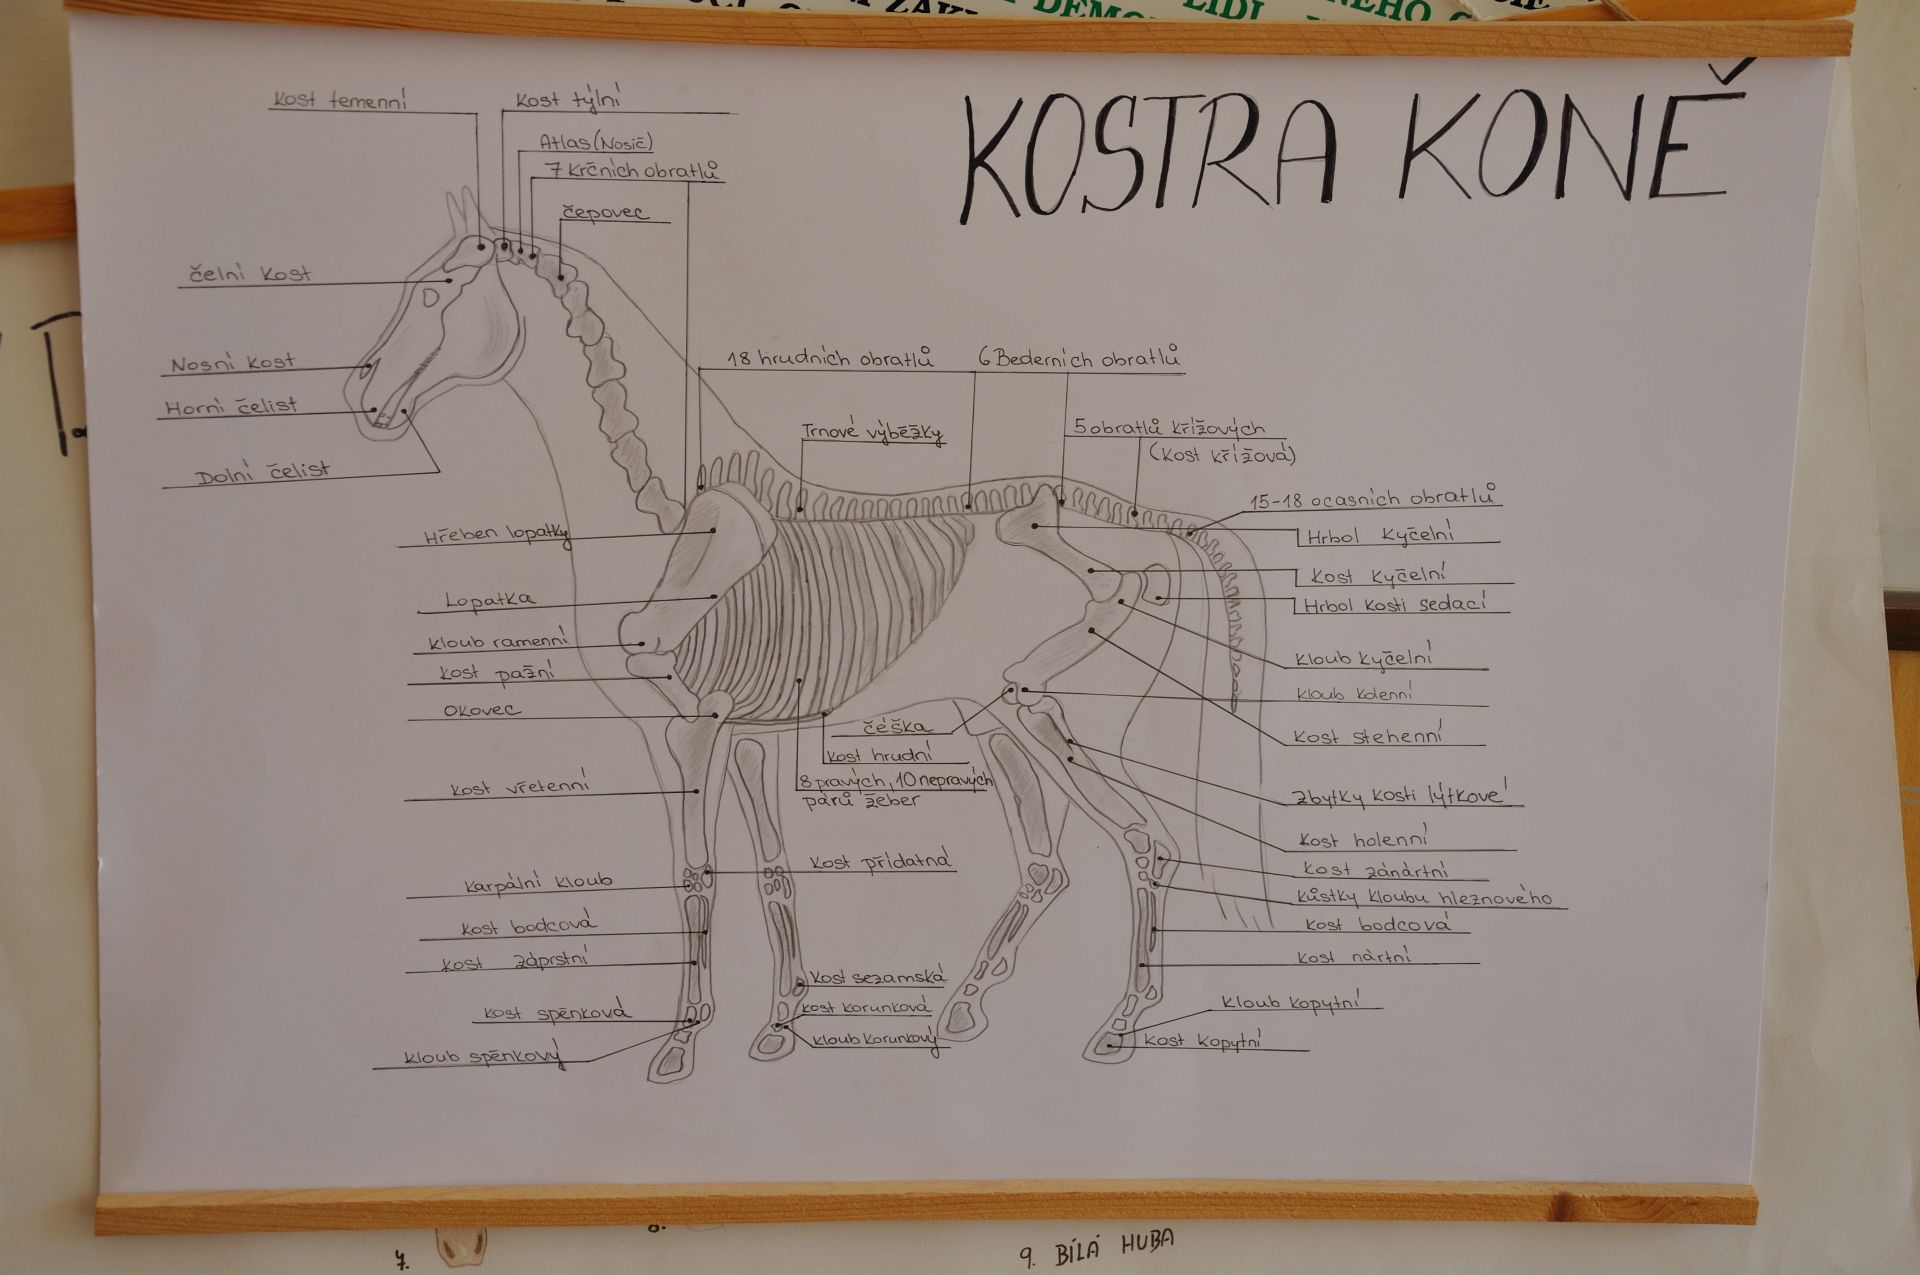 KOSTRA KONĚ
Kost temenní
Kost týlní
Atlas (Nosič)
7 Krčních obratlů
čepovec
čelní kost
Nosní kost
Horní čelist
Dolní čelist
18 hrudních obratlů
6 Bederních obratlů
Trnové výběžky
5 obratlů křížových
(Kost křížová)
15-18 ocasních obratlů
Hrbol kyčelní
Kost kyčelní
Hrbol kosti sedací
Kloub kyčelní
Kloub kolenní
Kost stehenní
Zbytky kosti lýtkové
Kost holenní
Kost zánártní
Kůstky kloubu hleznového
Kost bodcová
Kost nártní
Kloub kopytní
Kost kopytní
Hřeben lopatky
Lopatka
Kloub ramenní
Kost pažní
Okovec
Kost vřetenní
Karpální kloub
Kost bodcová
Kost záprstní
Kost spěnková
Kloub spěnkový
čéška
Kost hrudní
8 pravých, 10 nepravých
párů žeber
Kost přídatná
Kost sezamská
Kost korunková
Kloub korunkový
7.
8.
9. BÍLÁ HUBA